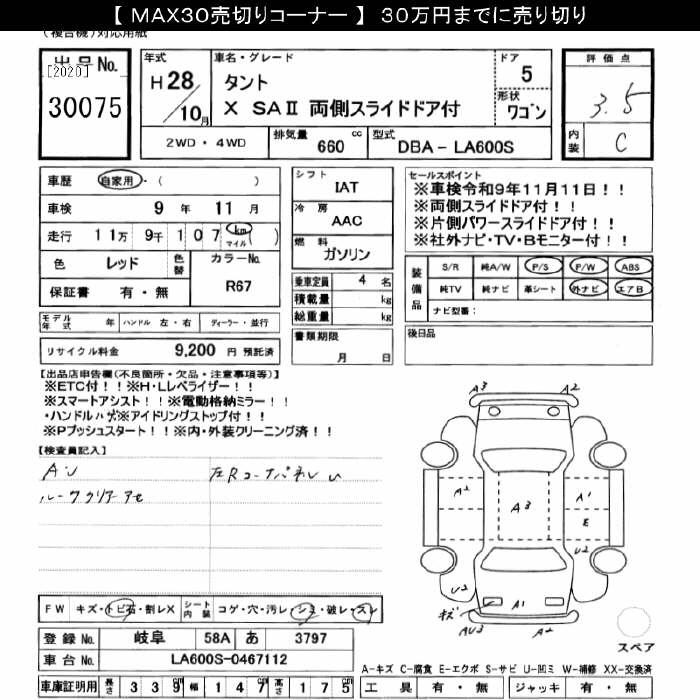 【 MAX30売切りコーナー 】 30万円までに売り切り
(複合機)対応用紙
出品No.
[2020]
30075
年式
H28/10月
車名・グレード
タント
X SAⅡ 両側スライドドア付
ドア
5
形状
ワゴン
評価点
3.5
内装
C
2WD・4WD
排気量
660 cc
型式
DBA-LA600S
車歴 自家用・( )
車検 9年 11月
走行 11万 9千 107 km マイル ( )
色 レッド 色替 カラーNo.
保証書 有・無 R67
モデル年式 年 ハンドル 左・右 ディーラー・並行
リサイクル料金 9,200 円 預託済
シフト
IAT
冷房
AAC
燃料
ガソリン
乗車定員 4 名
積載量 kg
総重量 kg
書類期限
月 日
セールスポイント
※車検令和9年11月11日!!
※両側スライドドア付!!
※片側パワースライドドア付!!
※社外ナビ・TV・Bモニター付!!
装備品
S/R 純A/W P/S P/W ABS
純TV 純ナビ 革シート 外ナビ エアB
ナビ型番:
後日品
【出品店申告欄(不良箇所・欠品・注意事項等)】
※ETC付!!※H・Lレベライザー!!
※スマートアシスト!!※電動格納ミラー!!
・ハンドルハゲ※アイドリングストップ付!!
※Pプッシュスタート!!※内・外装クリーニング済!!
【検査員記入】
AU 左Rコーナパネル U
ルーフクリアアセ
A3 A2
A2 A3 A1
E
U2 U2
キズ A1
AU3 A2
スペア
FW キズ・トビ石・割レX シート内装 コゲ・穴・汚レ・シミ・破レ・スレ
登録No. 岐阜 58A あ 3797
車台No. LA600S-0467112
車庫証明用 長さ 339 幅 147 高さ 175
A-キズ C-腐食 E-エクボ S-サビ U-凹ミ W-補修 XX-交換済
工具 有・無 ジャッキ 有・無